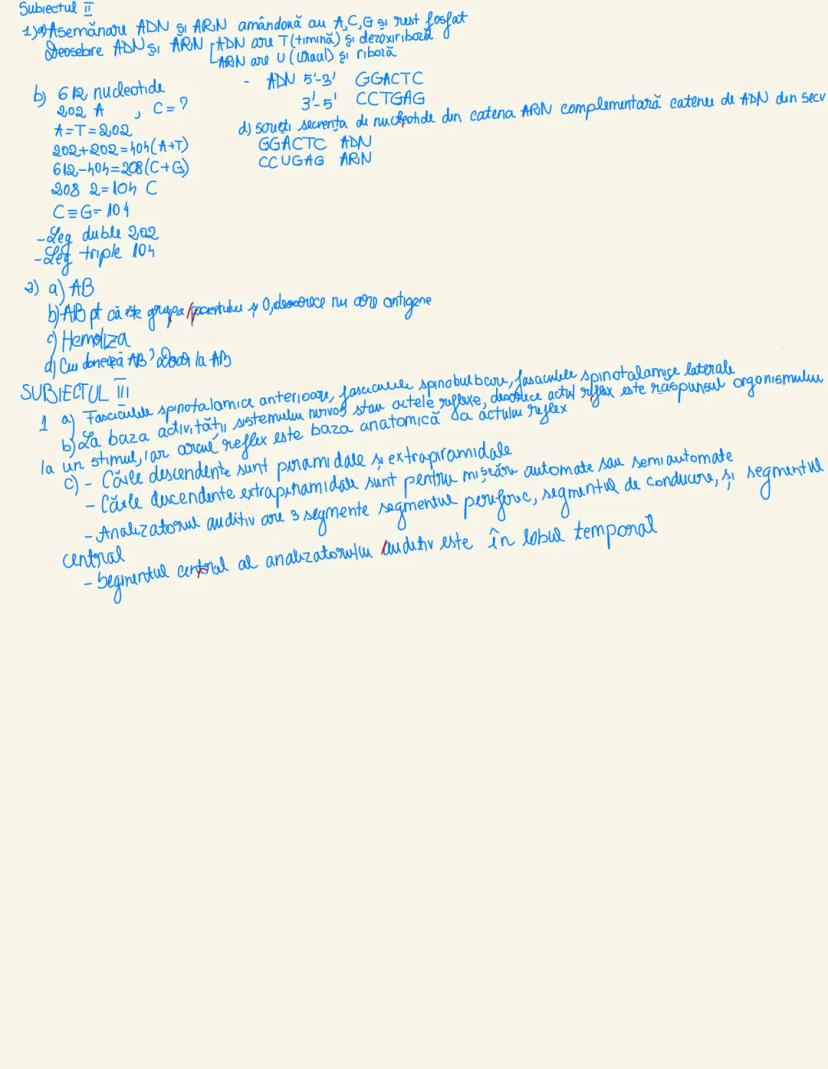 Subiectul II
1) a) Asemănare ADN și ARN amândouă au A,C,G și rest fosfat
Deosebire ADN și ARN ADN are T (timină) și dezoxiriboză
ARN are U (Uracil) și riboză
- ADN 5'-3' GGACTC
3'-5' CCTGAG
b) 612 nucleotide
202 A , C=?
A=T=202
202+202=404(A+T)
612-404=208(C+G)
208 2=104 C
C≡G=104
-Leg duble 202
-Leg triple 104
d) scrieți secvența de nucleotide din catena ARN complementară catenei de ADN din secv
GGACTC ADN
CCUGAG ARN
2) a) AB
b) AB pt că este grupa pacientului și 0, deoarece nu are antigene
c) Hemoliza
d) AB la AB
SUBIECTUL III
1 a) Fasciculele spinotalamice anterioare, fasciculele spinobulbare, fasciculele spinotalamice laterale
b) La baza activității sistemului nervos stau actele reflexe, deoarece actul reflex este răspunsul organismului
la un stimul, iar arcul reflex este baza anatomică a actului reflex
c) - Căile descendente sunt piramidale și extrapiramidale
- Căile descendente extrapiramidale sunt pentru mișcări automate sau semiautomate
- Analizatorul auditiv are 3 segmente segmentul periferic, segmentul de conducere, și segmentul
central
- Segmentul central al analizatorului auditiv este în lobul temporal